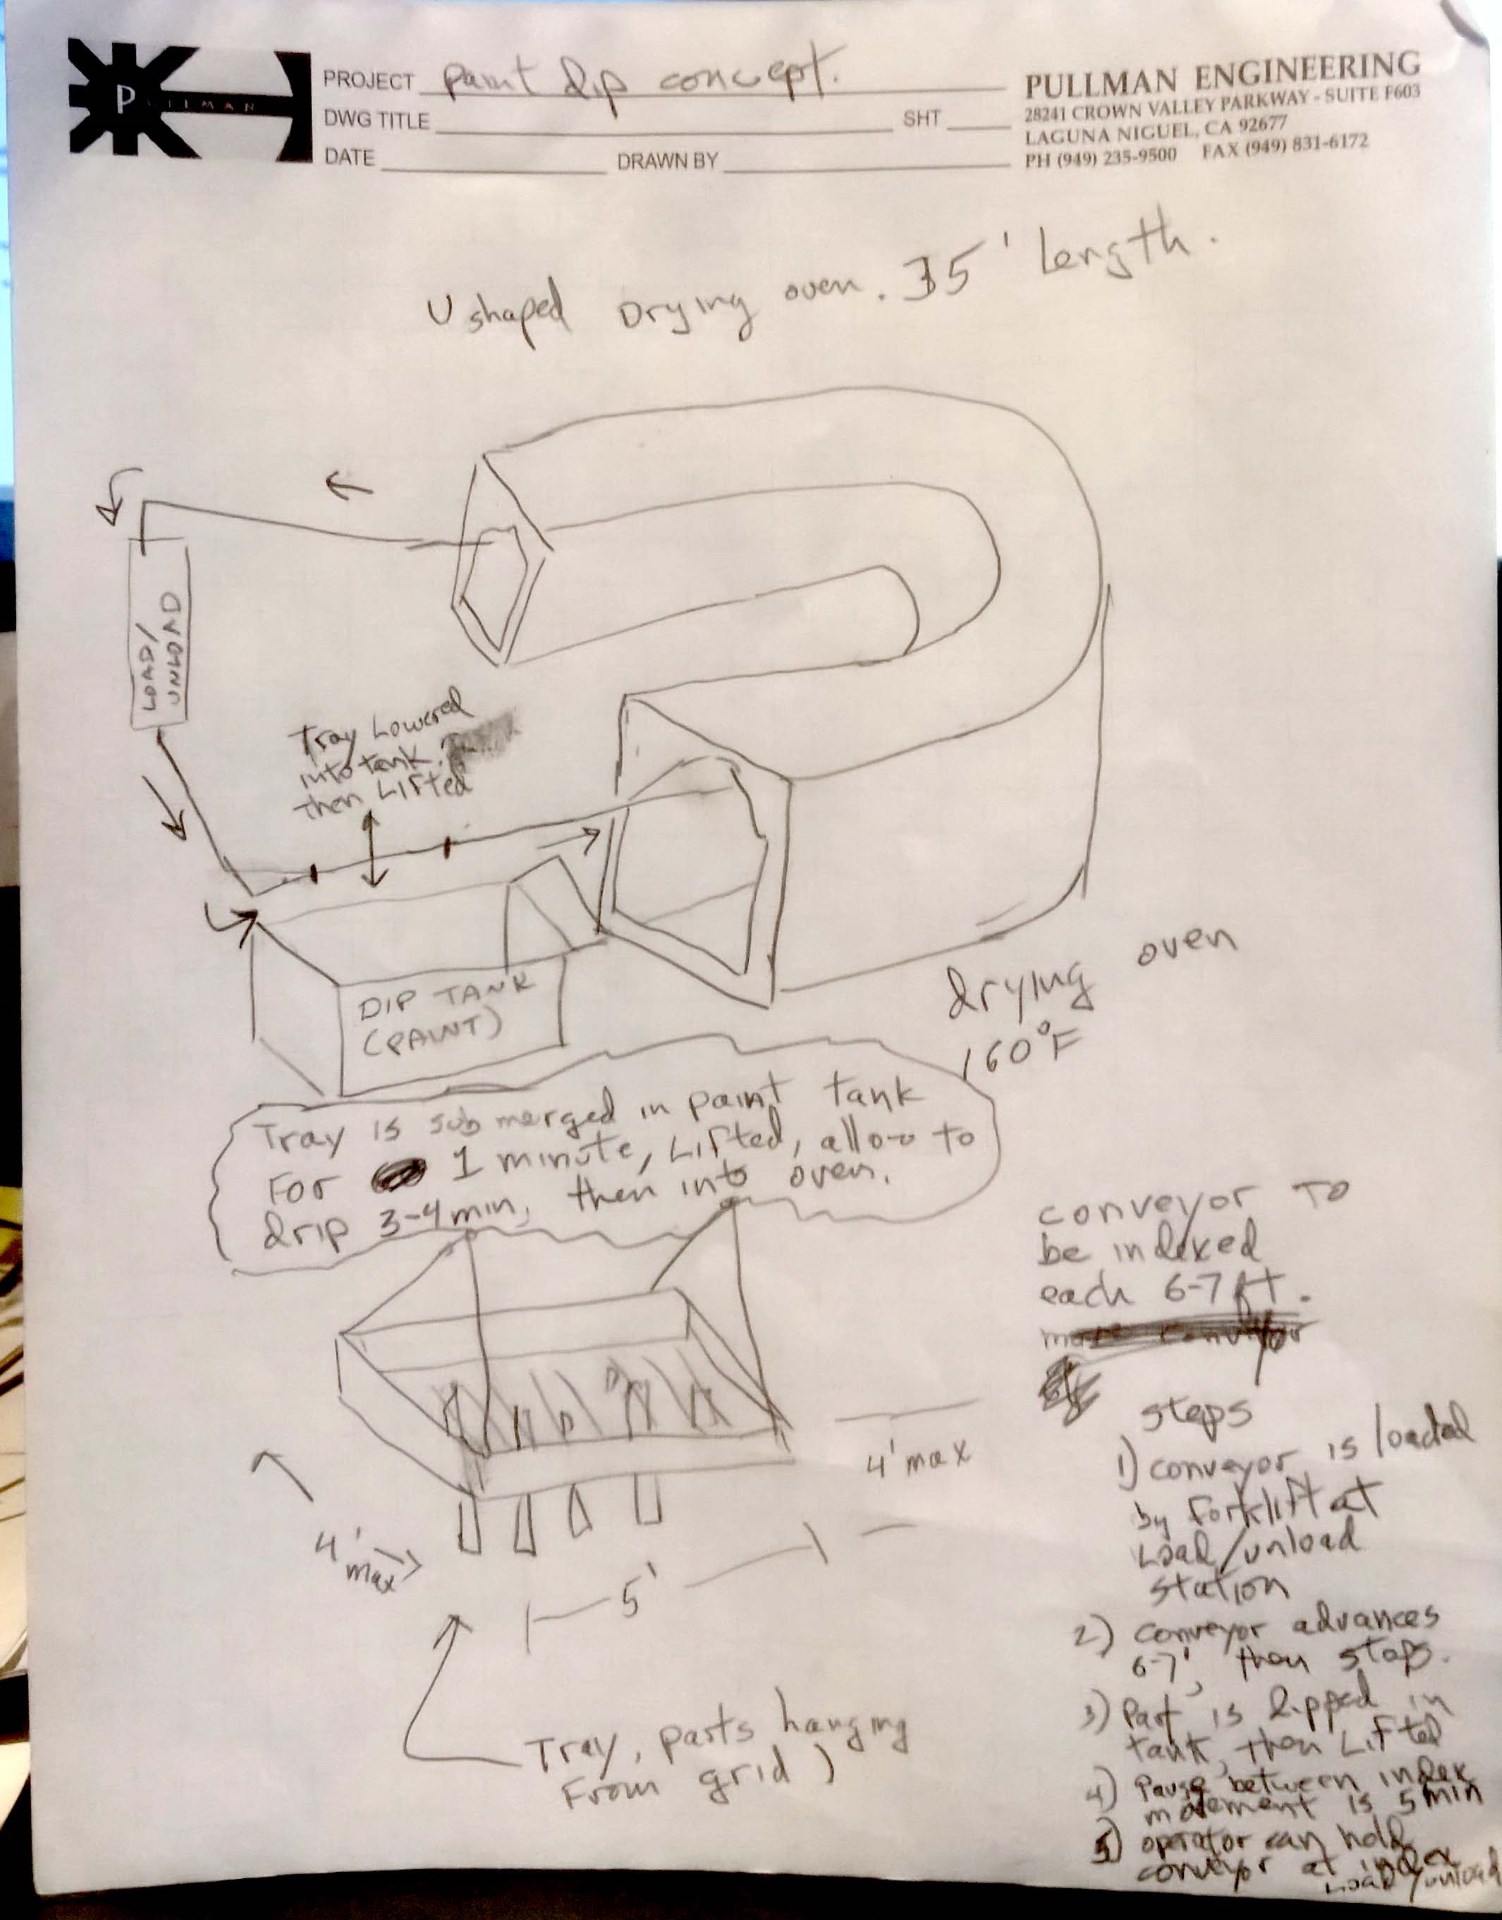 PULLMAN
PROJECT paint dip concept.
DWG TITLE SHT
DATE DRAWN BY
PULLMAN ENGINEERING
28241 CROWN VALLEY PARKWAY - SUITE F603
LAGUNA NIGUEL, CA 92677
PH (949) 235-9500 FAX (949) 831-6172
U shaped Drying oven. 35' Length.
LOAD/
UNLOAD
Tray Lowered
into tank.
then Lifted
DIP TANK
(PAINT)
drying oven
160°F
Tray is submerged in paint tank
For 1 minute, Lifted, allow to
drip 3-4 min, then into oven.
conveyor TO
be indexed
each 6-7 ft.
4' max
4'
max
5'
Tray, parts hanging
From grid)
steps
1) conveyor is loaded
by Forklift at
Load/unload
station
2) conveyor advances
6-7', then stops.
3) Part is dipped in
tank, then Lifted
4) Pause between index
movement is 5 min
5) operator can hold
conveyor at index
Load/unload